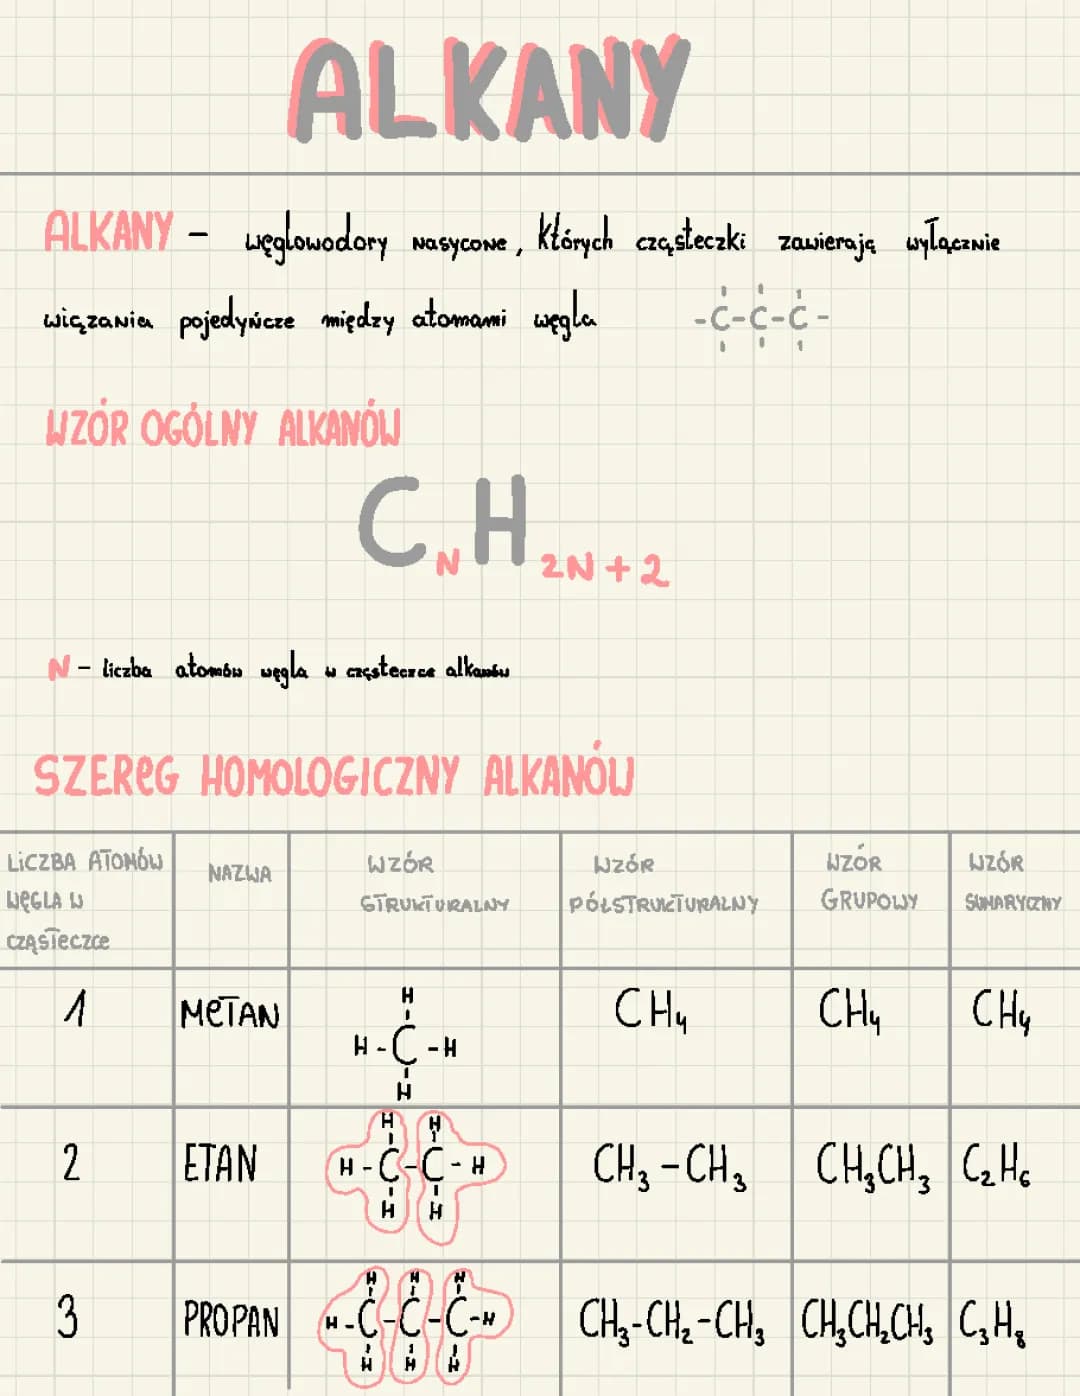 ALKANY
ALKANY – węglowodory nasycone, których cząsteczki zawierają wyłącznie
wiązania pojedyńcze między atomami węgla -C-C-C-
WZÓR OGÓLNY ALKANÓW
CₙH₂ₙ₊₂
N – liczba atomów węgla w cząsteczce alkanów
SZEREG HOMOLOGICZNY ALKANÓW
LICZBA ATOMÓW WĘGLA W CZĄSTECZCE | NAZWA | WZÓR STRUKTURALNY | WZÓR PÓŁSTRUKTURALNY | WZÓR GRUPOWY | WZÓR SUMARYCZNY
H
1 METAN H-C-H CH₄ CH₄ CH₄
H
H H
2 ETAN H-C-C-H CH₃-CH₃ CH₃CH₃ C₂H₆
H H
H H H
3 PROPAN H-C-C-C-H CH₃-CH₂-CH₃ CH₃CH₂CH₃ C₃H₈
H H H